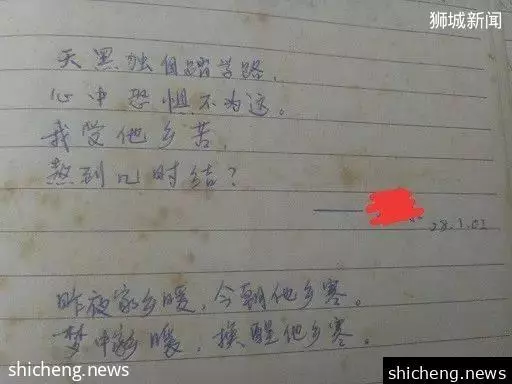 狮城新闻
天黑独自踏学路,
心中恐惧不为这。
我受他乡苦,
熬到几时结?
28.1.02
昨夜家乡暖,今朝他乡寒。
梦中乡暖,换醒他乡寒。
shicheng.news
shicheng.news